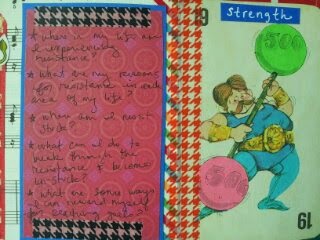 ★ where in my life am
I experiencing
resistance?
★ what are my reasons
for resistance in each
area of my life?
★ where am I most
stuck?
★ what can I do to
break through the
resistance & become
un-stuck?
★ what are some ways
I can reward myself
for reaching goals
19
strength
500
500
19